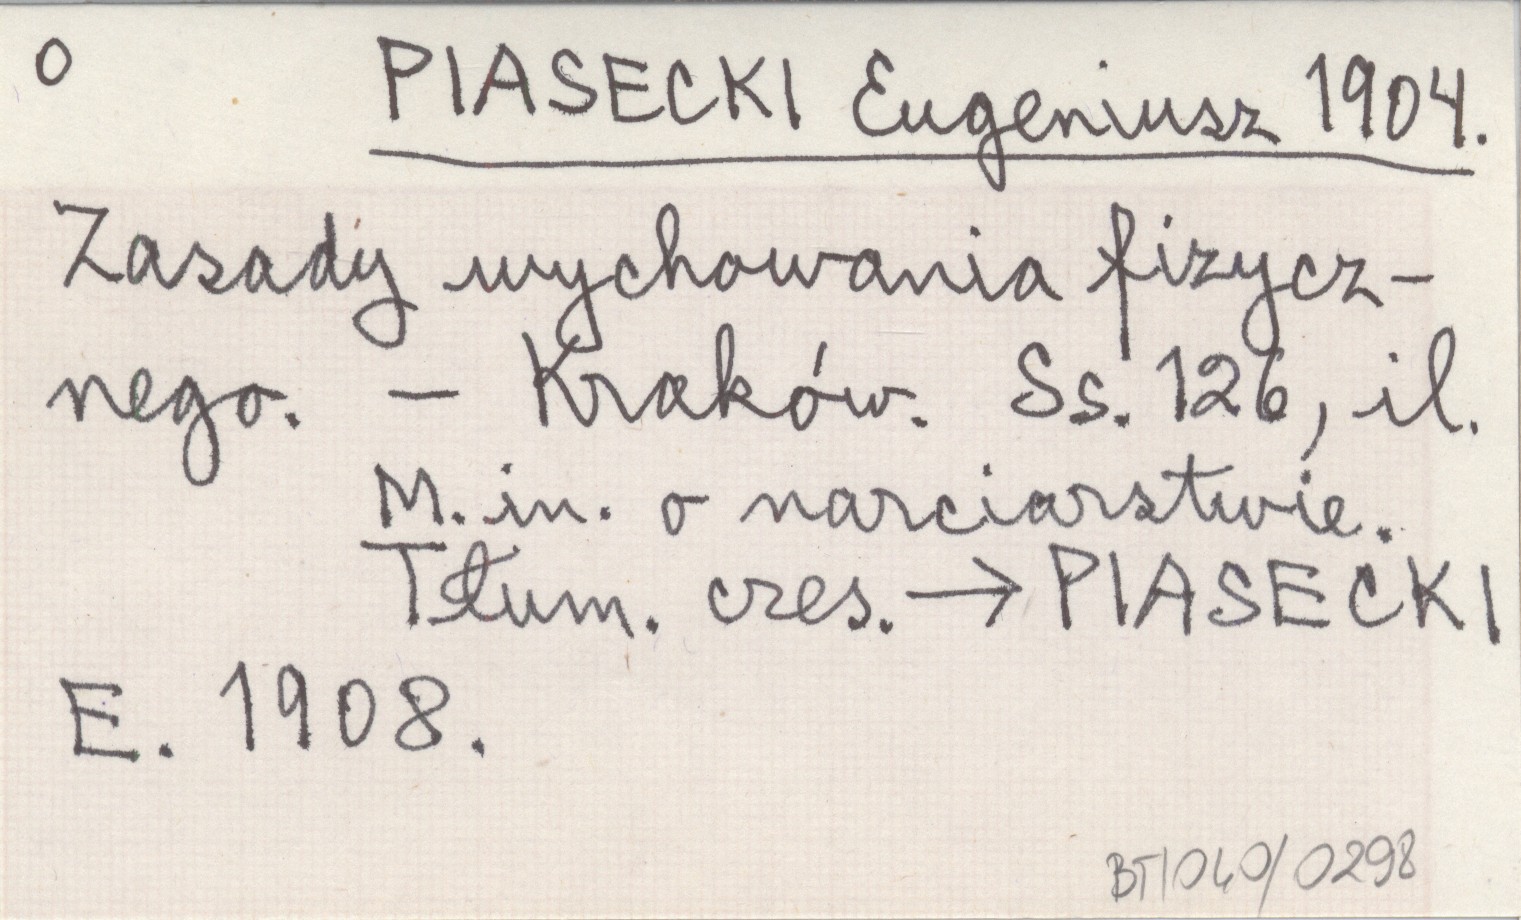 o PIASECKI Eugeniusz 1904.
Zasady wychowania fizycz-
nego. – Kraków. Ss. 126, il.
M. in. o narciarstwie.
Tłum. czes. → PIASECKI
E. 1908.
BT/040/0298